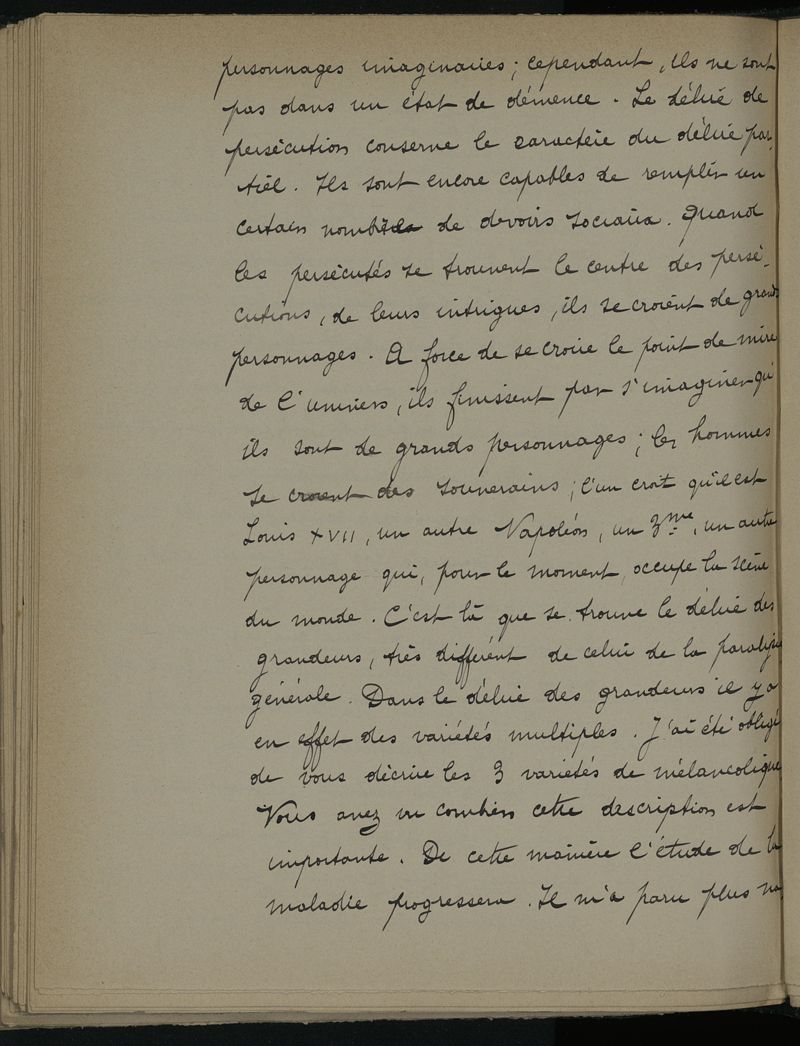 personnages imaginaires ; cependant, ils ne sont
pas dans un état de démence. Le délire de
persécution conserve le caractère du délire par-
tiel. Ils sont encore capables de remplir un
certain nombre de devoirs sociaux. Quand
les persécutés se trouvent le centre des persé-
cutions, de leurs intrigues, ils se croient de grands
personnages. A force de se croire le point de mire
de l'univers, ils finissent par s'imaginer qu'
ils sont de grands personnages ; les hommes
se croient des souverains ; l'un croit qu'il est
Louis XVII, un autre Napoléon, un 3me, un autre
personnage qui, pour le moment, occupe la scène
du monde. C'est là que se trouve le délire des
grandeurs, très différent de celui de la paralysie
générale. Dans le délire des grandeurs il y a
en effet des variétés multiples. J'ai été obligé
de vous décrire les 3 variétés de mélancolique
Vous avez vu combien cette description est
importante. De cette manière l'étude de la
maladie progressera. Il m'a paru plus